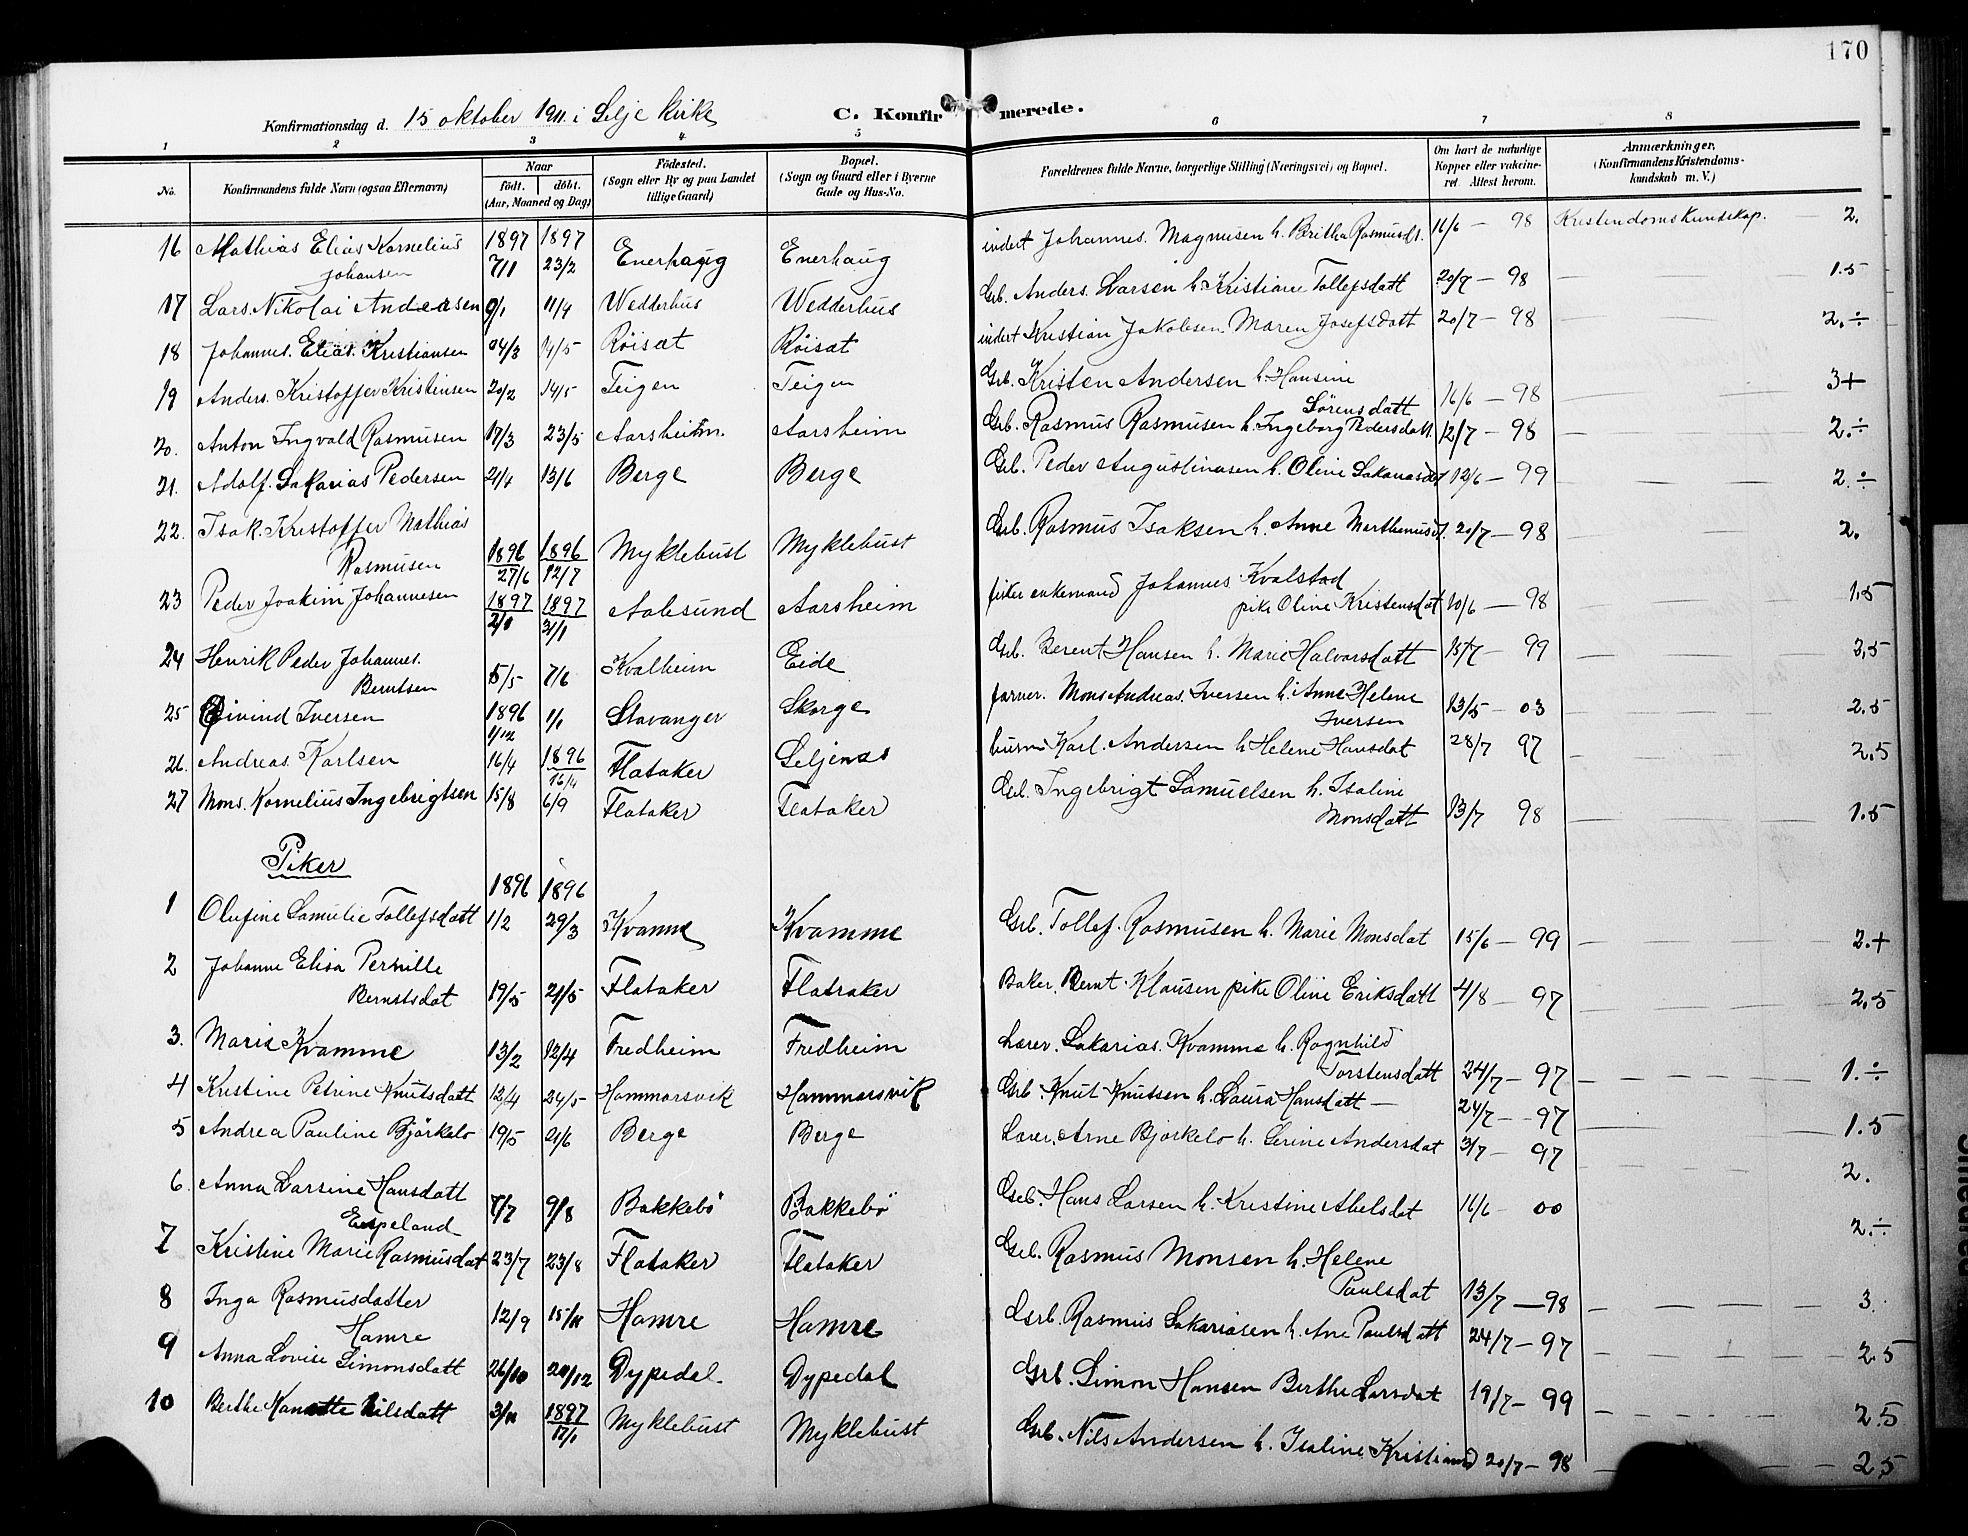 170
Konfirmationsdag d. 15 oktober 1911 i Selje kirke
C. Konfirmerede.
1 2 3 4 5 6 7 8
No.
Konfirmandens fulde Navn (ogsaa Efternavn)
Naar
født. døbt.
(Aar, Maaned og Dag)
Fødested.
(Sogn eller By og paa Landet
tillige Gaard)
Bopæl.
(Sogn og Gaard eller i Byerne
Gade og Hus-No.
Forældrenes fulde Navne, borgerlige Stilling (Næringsvei) og Bopæl.
Om havt de naturlige
Kopper eller vakcine-
ret Attest herom.
Anmærkninger,
(Konfirmandens Kristendoms-
kundskab m. V.)
16 Mathias Elias Kornelius 1897 1897 Enerhaug Enerhaug inderst Johannes Magnusen h. Britha Rasmusdt. 16/6 — 98 Kristendomskundskap. 2.
Johansen 7/1 23/2
17 Lars Nikolai Andersen 9/1 11/4 Wedderhus Wedderhus Grb. Anders Larsen h. Kristiane Tollefsdatt 20/7 — 98 — 1.5
18 Johannes Elias Kristiansen 14/5 Røisat Røisat inderst Kristian Jakobsen Maren Josefsdatt 20/7 — 98 — 2.÷
19 Anders Kristoffer Kristensen 20/2 14/5 Teigen Teigen Grb. Kristen Andersen h. Hansine
Sørensdatt 16/6 — 98 — 3+
20. Anton Ingvald Rasmusen 17/3 23/5 Aarsheim Aarsheim Grb. Rasmus Rasmusen h. Ingeborg Pedersdatt. 12/7 — 98 — 2.÷
21. Adolf Sakarias Pedersen 21/4 13/6 Berge Berge Grb. Peder Augustinusen h. Oline Sakariasdt 12/6 — 99 — 2.÷
22. Isak Kristoffer Mathias
Rasmusen 1896 27/6 1896 12/7 Myklebust Myklebust Grb. Rasmus Isaksen h. Anne Marthinusd. 20/7 — 98 — 2.
23 Peder Joakim Johannesen 1897 2/1 1897 31/1 Aalesund Aarsheim fisker enkemand Johannes Kvalstad
pike Oline Kristensdat 10/6 — 98 — 1.5
24 Henrik Peder Johannes
Berntsen 5/5 7/6 Kvalheim Eide Grb. Berent Hansen h. Marie Halvorsdatt 15/7 — 99 — 3,5
25 Eivind Iversen 1896 1/12 1/1 Stavanger Skorge farver. Mons Andreas Iversen h. Anne Helene
Iversen 13/5 — 03 — 2.5
26. Andreas Karlsen 16/4 1896 16/4 Flataker Seljenes Karl Andersen h. Helene Hansdat 28/7 97 — 2.5
27 Mons Kornelius Ingebrigtsen 15/8 6/9 Flataker Flataker Grb. Ingebrigt Samuelsen h. Isaline
Monsdatt 13/7 98 — 1.5
Piker
1896 1896
1 Olufine Samulie Tollefsdatt 1/2 29/3 Kvamme Kvamme Grb. Tollef Rasmusen h. Marie Monsdat 15/6 — 99 — 2.+
2 Johanne Elisa Pernille
Berntsdat 19/5 21/5 Flataker Flatraker Baker Bernt Klausen pike Oline Eriksdatt 4/8 — 97 — 2.5
3. Marie Kvamme 13/2 12/4 Fredheim Fredheim Lærer Sakarias Kvamme h. Ragnhild
Torstensdatt 24/7 — 97 — 1.÷
4 Kristine Petrine Knutsdatt 12/4 24/5 Hammarsvik Hammarsvik Grb. Knut Knutsen h. Laura Hansdatt — 24/7 — 97 — 1.5
5 Andrea Pauline Bjørkelo 19/5 21/6 Berge Berge Lærer Arne Bjørkelo h. Serine Andersdat 3/7 — 97 — 2.
6. Anna Larsine Hansdatt
Espeland 7/7 9/8 Bakkebö Bakkebö Grb. Hans Larsen h. Kristine Abelsdat 16/6 00 2.÷
7 Kristine Marie Rasmusdat 23/7 23/8 Flataker Flataker Grb. Rasmus Monsen h. Helene
Paulsdat 13/7 — 98 — 3
8 Inga Rasmusdatter
Hamre 12/9 15/11 Hamre Hamre Grb. Rasmus Sakariasen h. Ane Paulsdatt 24/7 — 97 — 2.5
9 Anna Lovise Simonsdatt 26/10 20/12 Dypedal Dypedal Grb. Simon Hansen Berthe Larsdat 19/7 — 99 — 2.5
10 Berthe Nilsdatt 3/11 1897 17/1 Myklebust Myklebust Grb. Nils Andersen h. Isaline Kristiansd 20/7 — 98 — 2.5